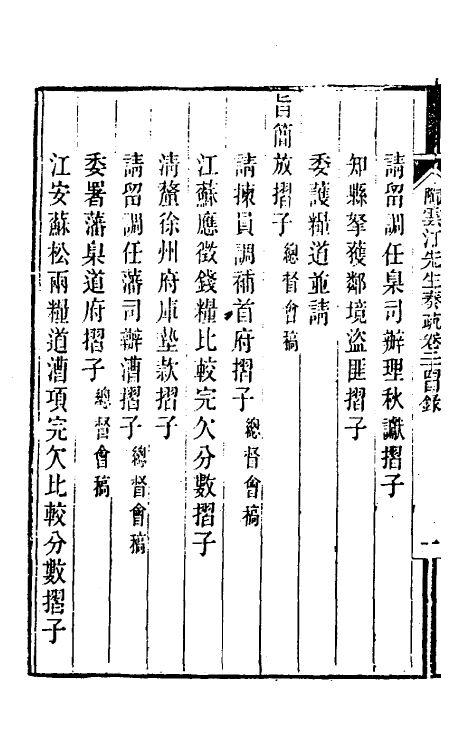 陶雲汀先生奏疏卷二目錄
一
請留調任臬司辦理秋讞摺子
知縣拏獲鄰境盜匪摺子
委護糧道並請
旨簡放摺子 總督會稿
請揀員調補首府摺子 總督會稿
江蘇應徵錢糧比較完欠分數摺子
清釐徐州府庫墊款摺子
請留調任藩司辦漕摺子 總督會稿
委署藩臬道府摺子 總督會稿
江安蘇松兩糧道漕項完欠比較分數摺子